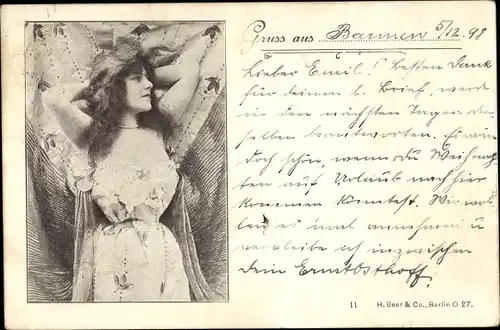 Gruss aus Barmen 5/12. 98
Lieber Emil! Besten Dank
für deinen l. Brief, werde
in den nächsten Tagen den
selben beantworten. Es wär
doch schön, wenn du Weihnach
ten auf Urlaub nach hier
kommen könntest. Wir wol
len es mal annehmen u
verbleibe ich inzwischen
dein Ernst Osthoff.
11 H. Beer & Co., Berlin O 27.